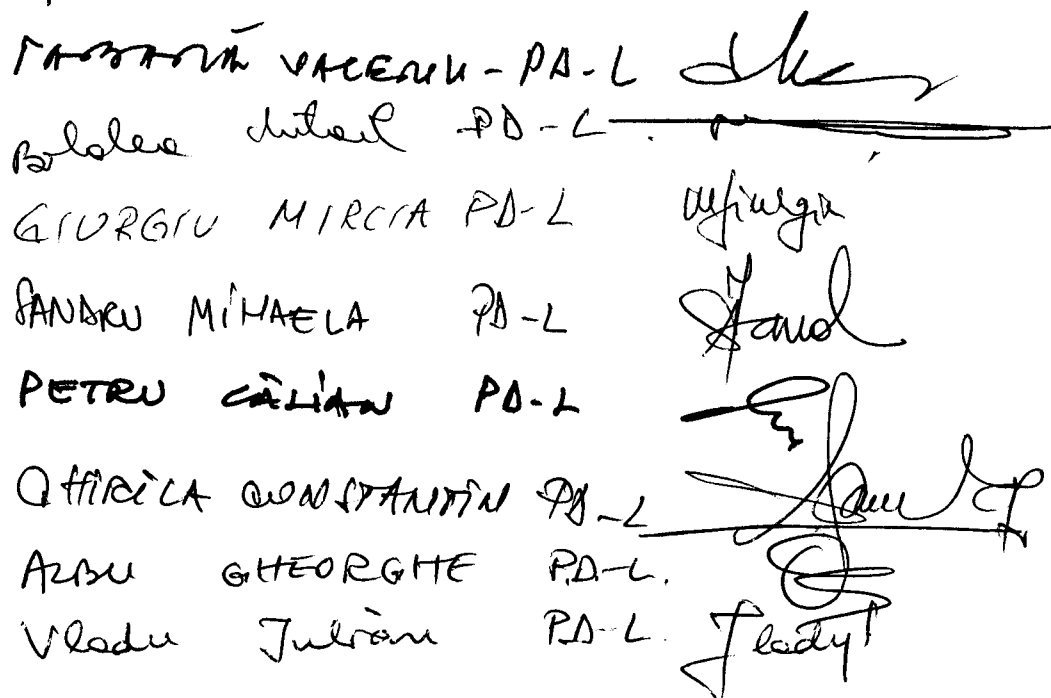 TABARĂ VALERIU - PD-L
Boldea Mihail PD-L
GIURGIU MIRCIA PD-L Mgiurgiu
SANDRU MIHAELA PD-L Sand
PETRU CĂLIAN PD-L
CHIRILA CONSTANTIN PD-L
ALBU GHEORGHE P.D-L.
Vladu Iulian P.D-L.